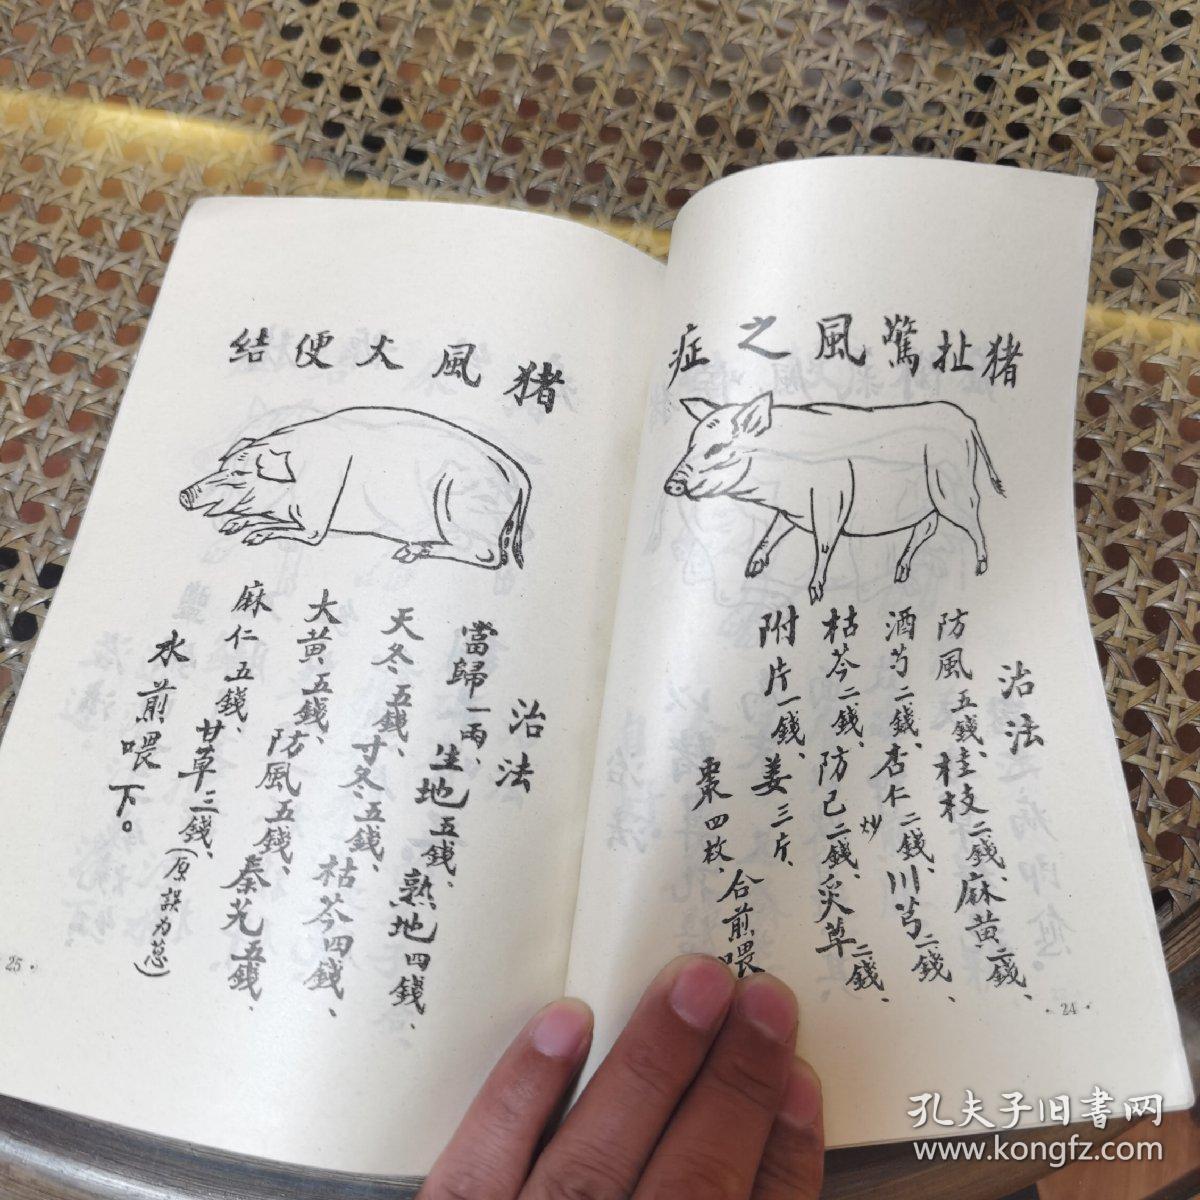 猪扯驚風之症
治法
防風五錢、桂枝二錢、麻黄二錢、
酒芍二錢、杏仁二錢、川芎二錢、
炒
枯芩二錢、防已二錢、炙草二錢、
附片一錢、姜三片、
棗四枚、合煎喂
·24·
猪風火便结
治法
當歸一兩、生地五錢、熟地四錢、
天冬五錢、寸冬五錢、枯芩四錢、
大黄五錢、防風五錢、秦艽五錢、
麻仁五錢、甘草三錢、(原誤为葱)
水煎喂下。
25·
孔夫子旧書网
www.kongfz.com